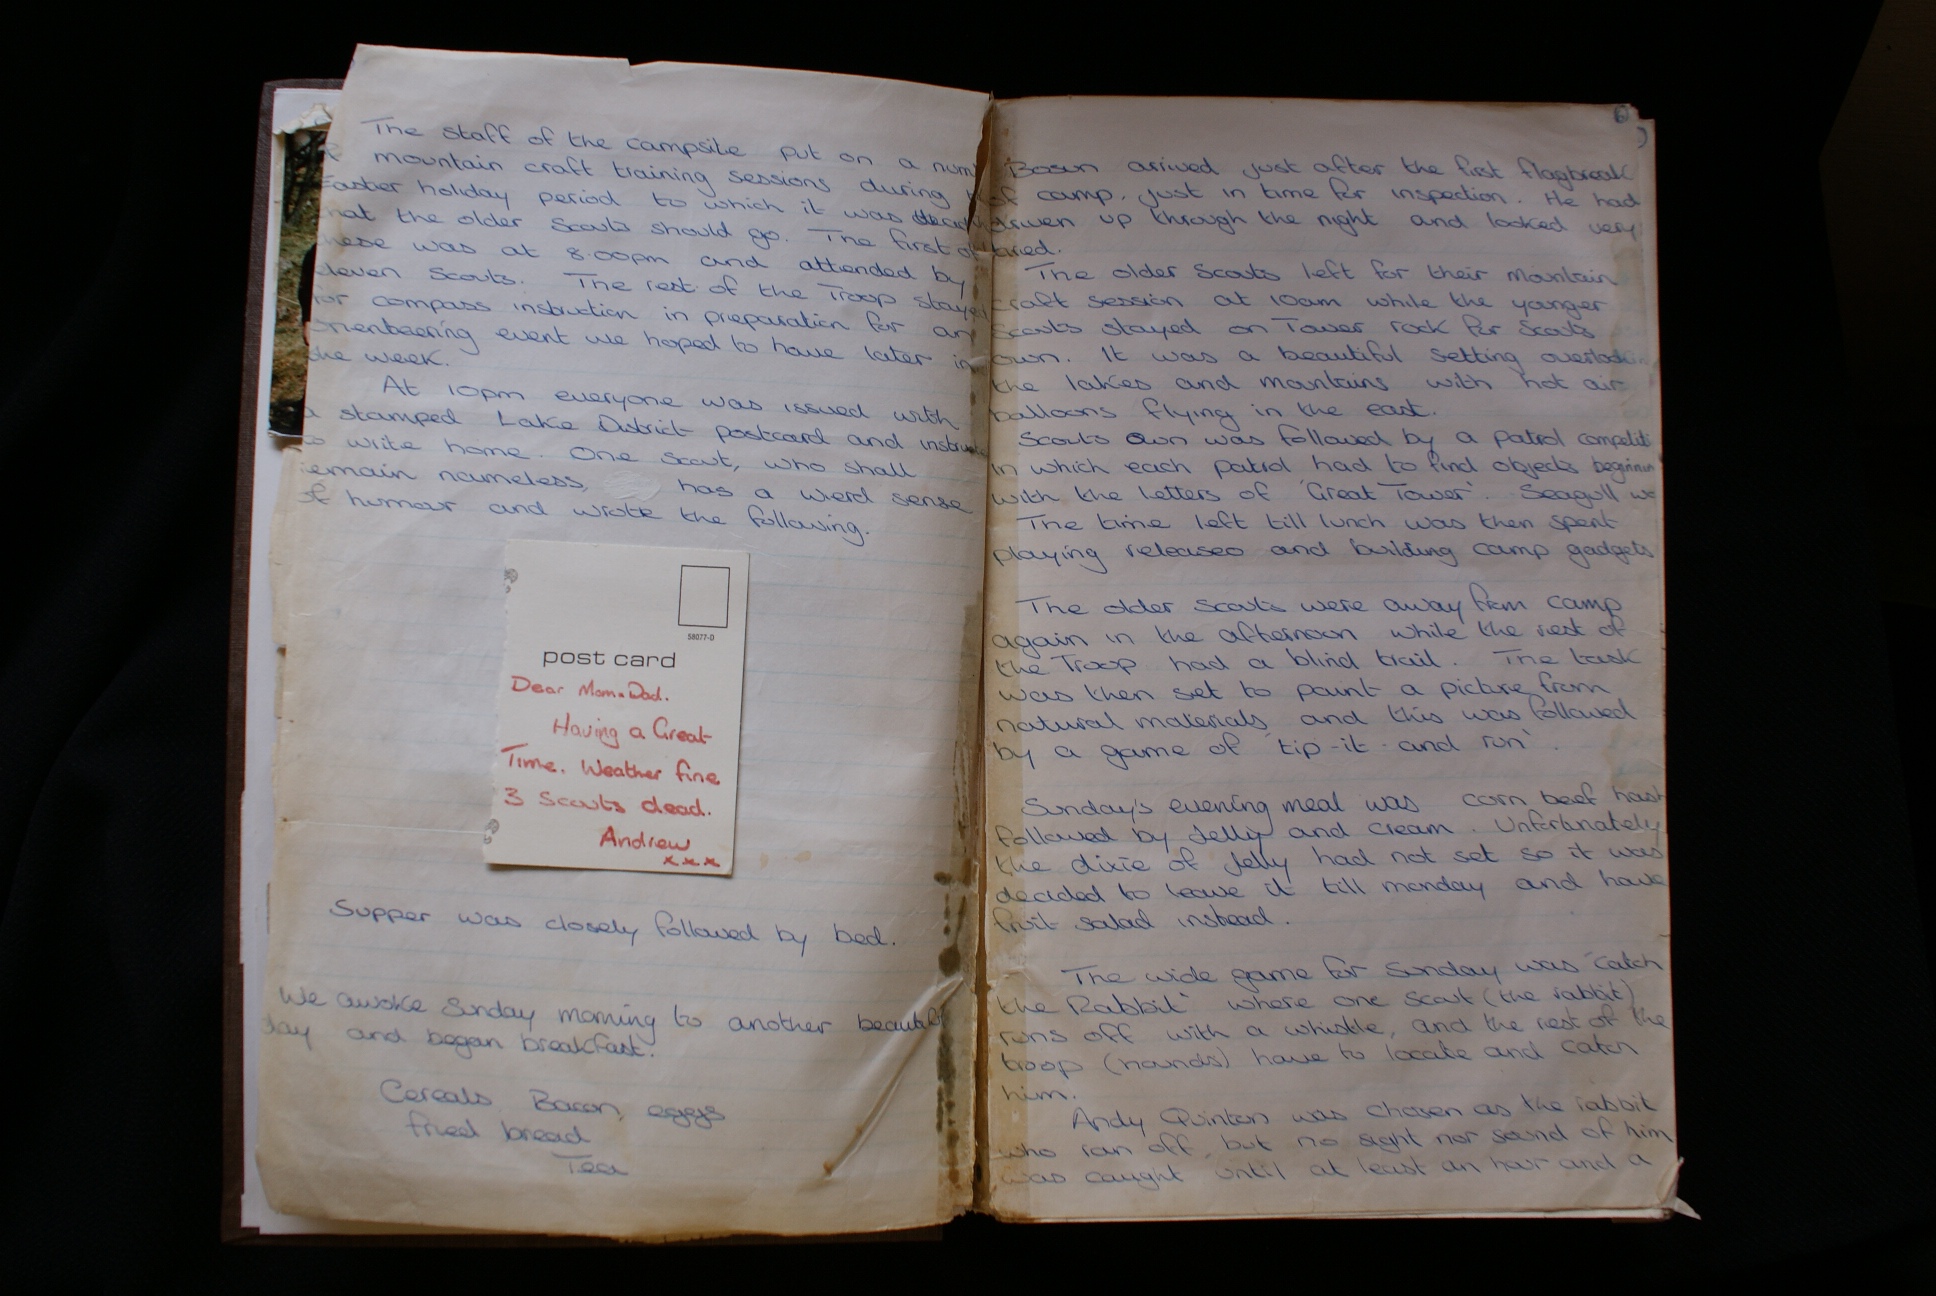 The staff of the campsite put on a num
mountain craft training sessions during
Easter holiday period to which it was
that the older Scouts should go. The first of
these was at 8.00pm and attended by
eleven Scouts. The rest of the Troop stayed
for compass instruction in preparation for an
orienteering event we hoped to have later in
the week.
At 10pm everyone was issued with
a stamped Lake District postcard and instru
to write home. One Scout, who shall
remain nameless, has a wierd sense
of humour and wrote the following.
58077-D
post card
Dear Mom & Dad.
Having a Great
Time. Weather fine
3 Scouts dead.
Andrew
x x x
Supper was closely followed by bed.
We awoke Sunday morning to another beautiful
day and began breakfast.
Cereals Bacon, eggs
fried bread
Tea
6
Bosun arrived just after the first flagbreak
of camp, just in time for inspection. He had
driven up through the night and looked very
tired.
The older Scouts left for their mountain
craft session at 10am while the younger
Scouts stayed on Tower rock for Scouts
own. It was a beautiful setting overlookin
the lakes and mountains with hot air
balloons flying in the east.
Scouts Own was followed by a patrol competiti
in which each patrol had to find objects beginnin
with the letters of 'Great Tower'. Seagull wo
The time left till lunch was then spent
playing releaseo and building camp gadgets
The older scouts were away from camp
again in the afternoon while the rest of
the Troop had a blind trail. The task
was then set to paint a picture from
natural materials and this was followed
by a game of 'tip-it-and run'.
Sunday's evening meal was corn beef hash
followed by Jelly and cream. Unfortunately
the dixie of Jelly had not set so it was
decided to leave it till monday and have
fruit salad instead.
The wide game for Sunday was 'catch
the Rabbit' where one scout (the rabbit)
runs off with a whistle, and the rest of the
troop (hounds) have to locate and catch
him.
Andy Quinton was chosen as the rabbit
who ran off, but no sight nor sound of him
was caught until at least an hour and a